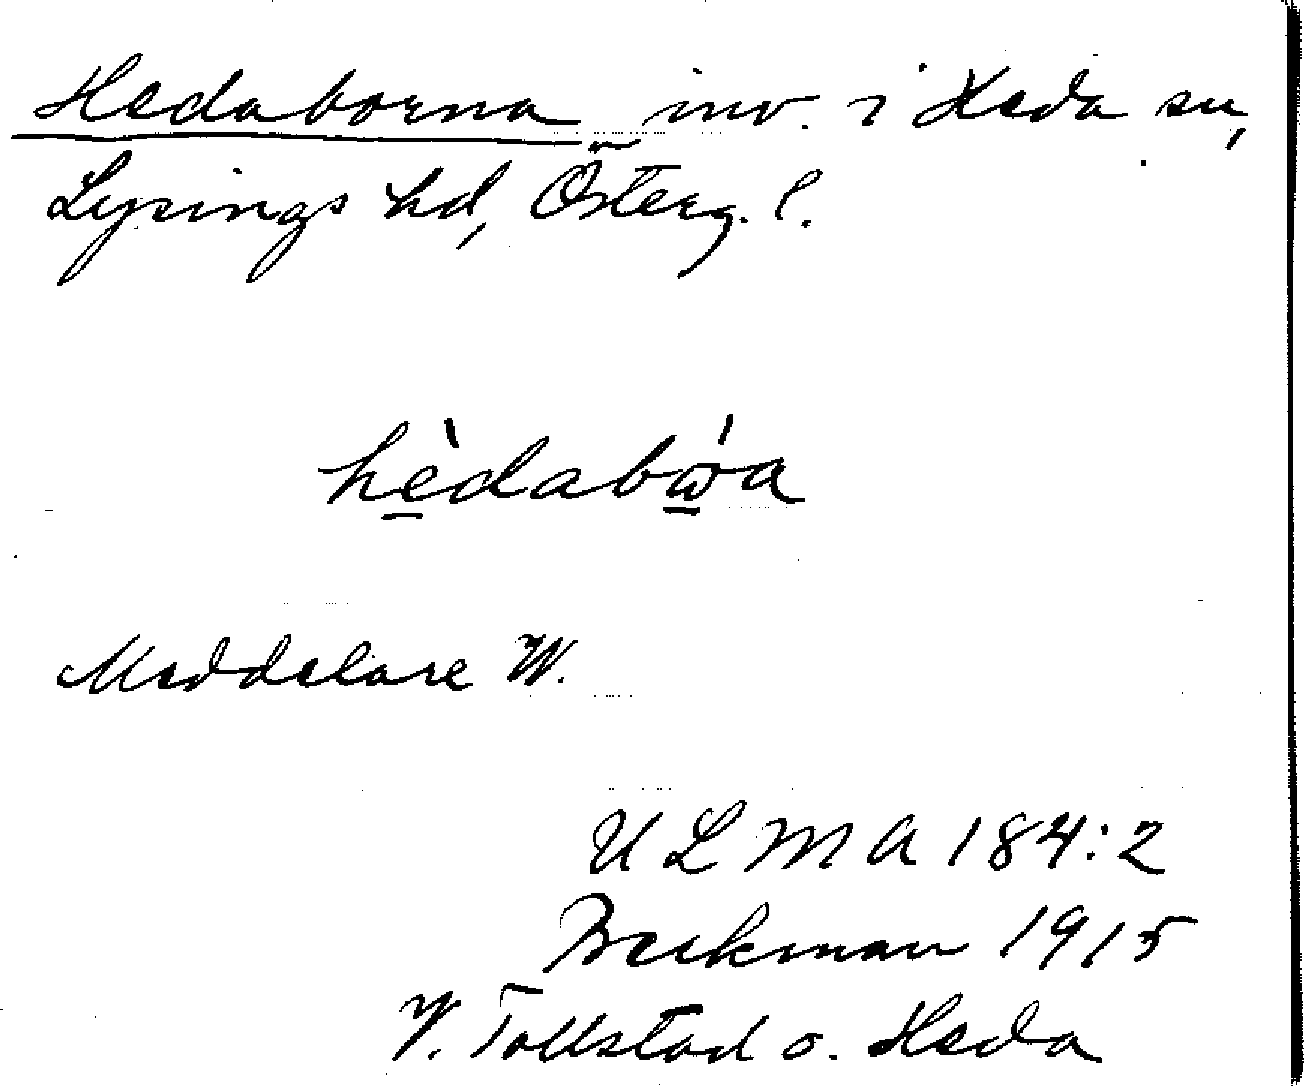 Hedaborna inv. i Heda sn,
Lysings hd, Österg. l.
hèdabώa
Meddelare W.
ULMA 184:2
Beckman 1915
V. Tollstad o. Heda